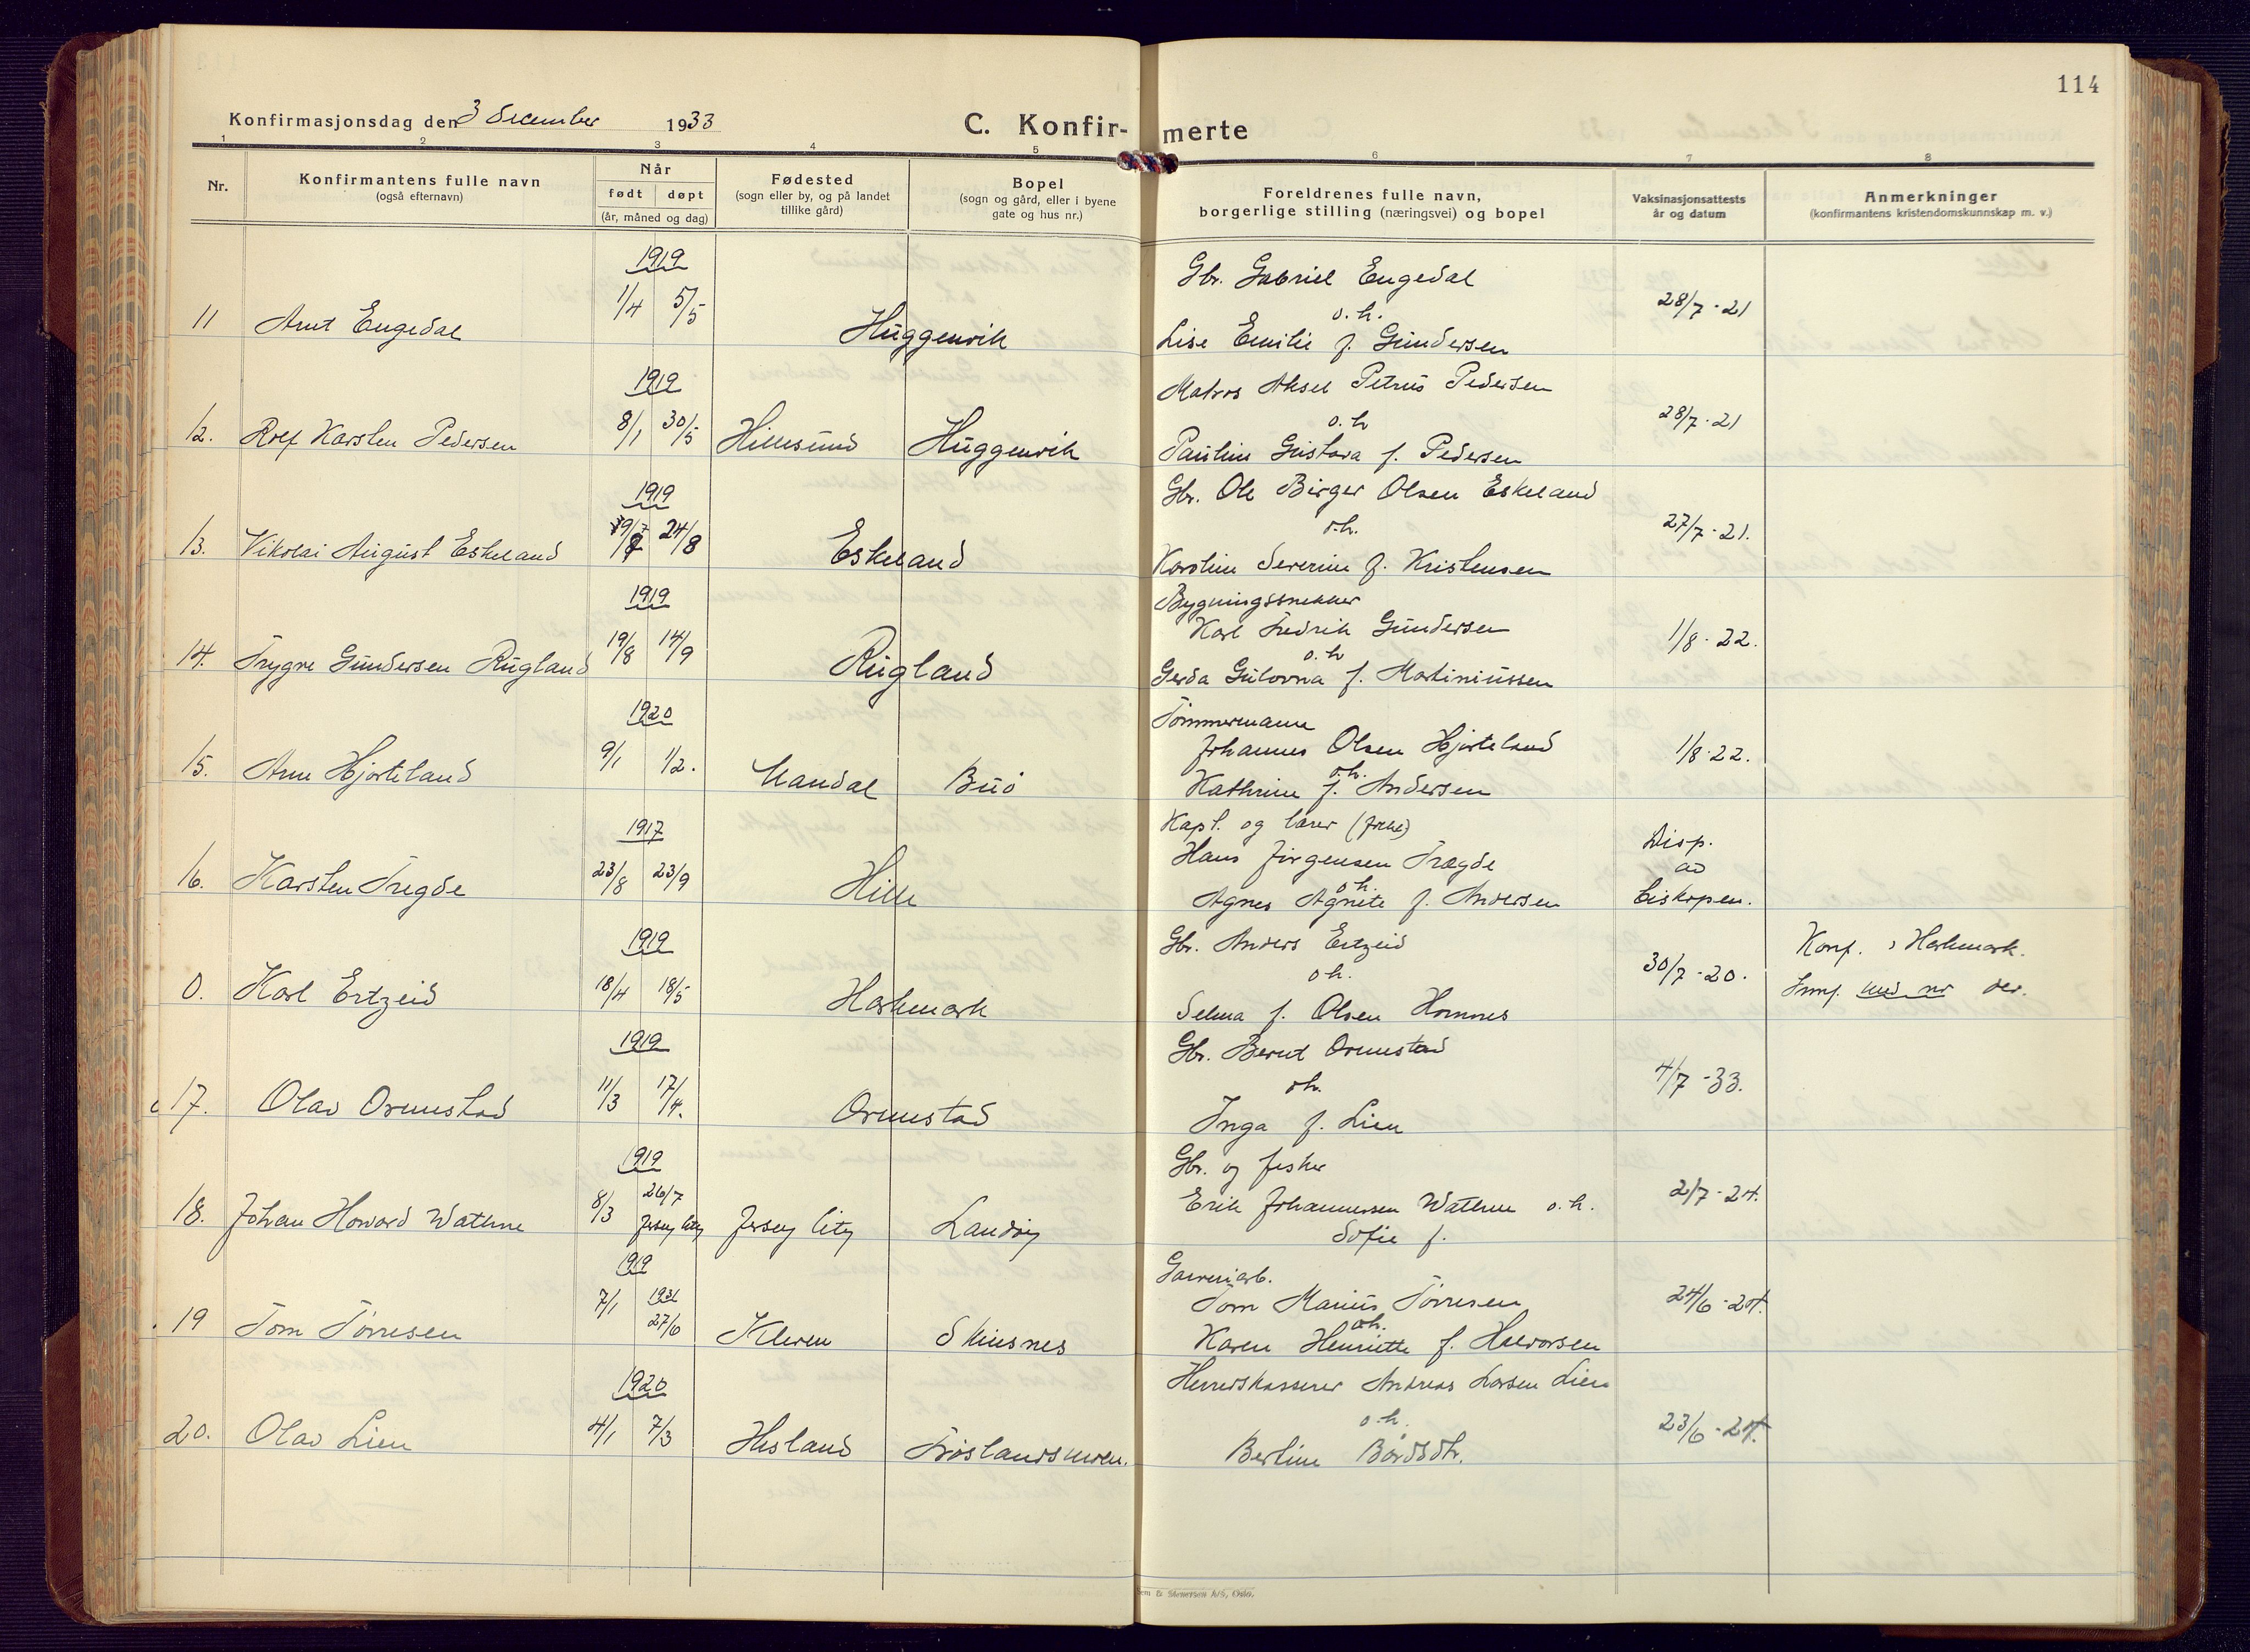 114
Konfirmasjonsdag den 3 December 1933
C. Konfir- merte
1 2 3 4 5 6 7 8
Nr.
Konfirmantens fulle navn
(også efternavn)
Når
født døpt
(år, måned og dag)
Fødested
(sogn eller by, og på landet
tillike gård)
Bopel
(sogn og gård, eller i byene
gate og hus nr.)
Foreldrenes fulle navn,
borgerlige stilling (næringsvei) og bopel
Vaksinasjonsattests
år og datum
Anmerkninger
(konfirmantens kristendomskunnskap m. v.)
1919
Gbr. Gabriel Engedal
11 Arnt Engedal 1/4 5/5 Huggenvik o. h. 28/7-21
Lise Emilie f. Gundersen
1919
Matros Aksel Petrus Pedersen
12. Rolf Karsten Pedersen 8/1 30/5 Hillesund Huggenvik o. h 28/7-21
Pauline Gustava f. Pedersen
1919
Gbr. Ole Birger Olsen Eskeland
13. Nikolai August Eskeland 24/8 Eskeland o. h. 27/7-21.
Karoline Severine f. Kristensen
1919
Bygningssnekker
Karl Fredrik Gundersen
14. Trygve Gundersen Rugland 19/8 14/9 Rugland o. h 1/8-22.
Gerda Gulovna f. Martiniussen
1920
Tømmermann
Johannes Olsen Hjorteland
15. Arne Hjorteland 9/1 1/2. Mandal Buø o. h. 1/8-22.
Kathrine f. Andersen
1917
Kapt. og lærer
Hans Jørgensen Trægde
16. Karsten Tregde 23/8 23/9 Hille o. h. Disp. av biskopen.
Agnes Agnete f. Andersen
1919
Gbr. Anders Ertzeid
0. Karl Ertzeid 18/4 18/5 Harkmark o h. 30/7-20. Konf. i Harkmark.
Selma f. Olsen Homnes
Innf. med nr der.
1919
Gbr. Bernt Ormestad
17. Olav Ormestad 11/3 17/4. Ormestad o h. 4/7-33.
Inga f. Lien
1919
Gbr. og fisker
18. Johan Howard Wathne 8/3 26/7 Jersey City Jersey City Landøy Erik Johannessen Wathne o. h. 2/7-24.
Sofie f.
1919
Garveriarb.
Tom Marius Tørresen
19 Tom Tørresen 7/1 1931 27/6 Kleven Skinsnes o h. 24/6-24.
Karen Henriette f. Halvorsen
1920
Herredskasserer Andreas Larsen Lien
20. Olav Lien 4/1 7/3 Hesland Frøslandsveien. o. h. 23/6-24.
Berline Bårdsdtr.